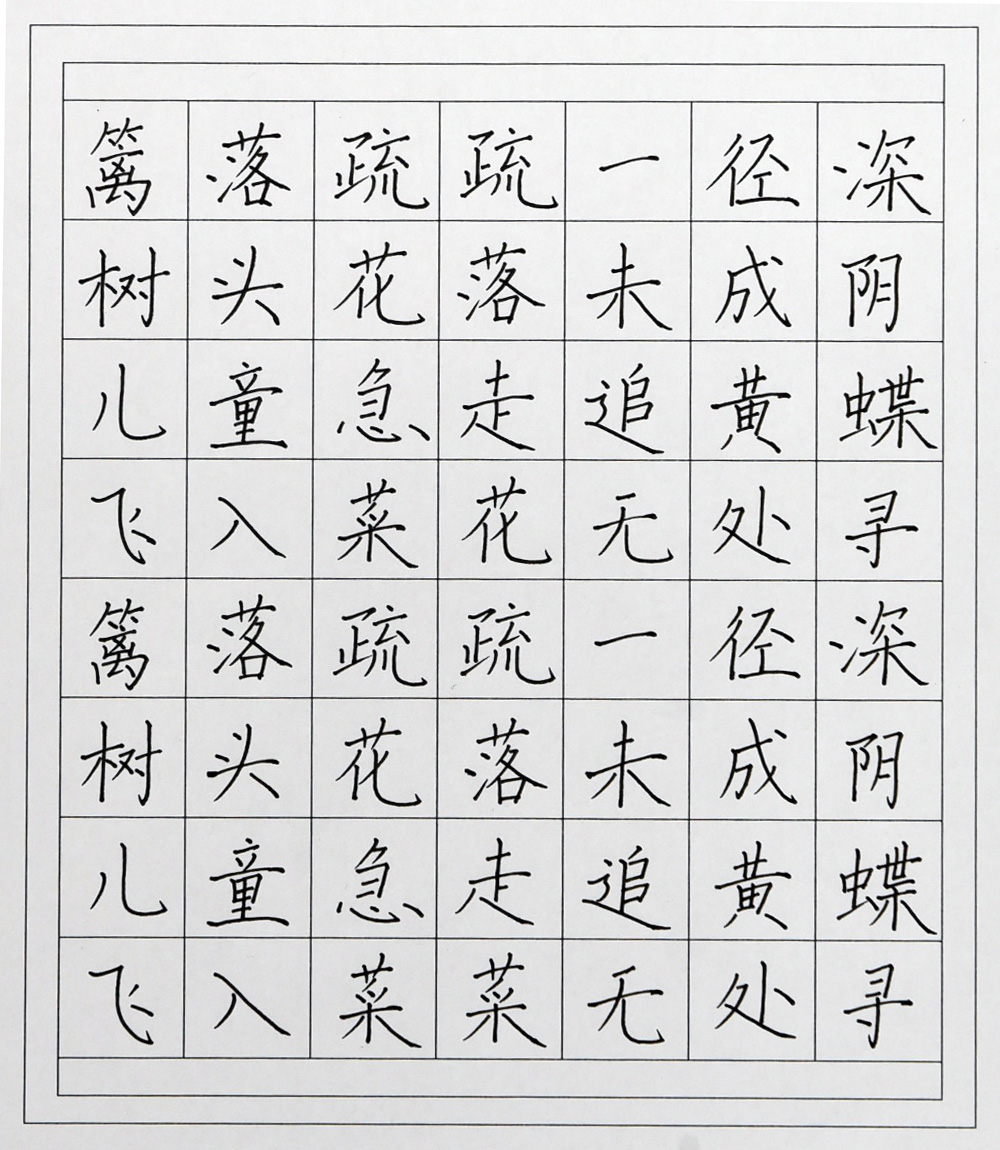 篱落疏疏一径深
树头花落未成阴
儿童急走追黄蝶
飞入菜花无处寻
篱落疏疏一径深
树头花落未成阴
儿童急走追黄蝶
飞入菜菜无处寻